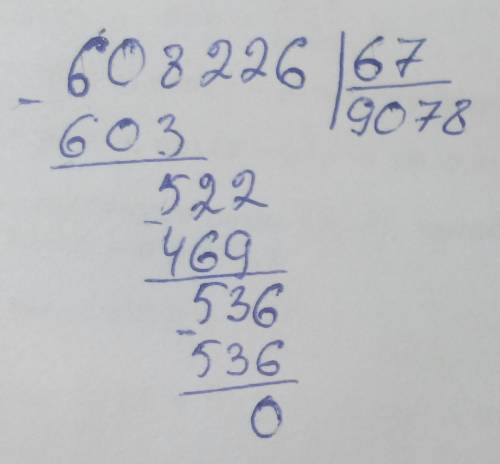 - 608226 | 67
603 9078
522
- 469
536
- 536
0